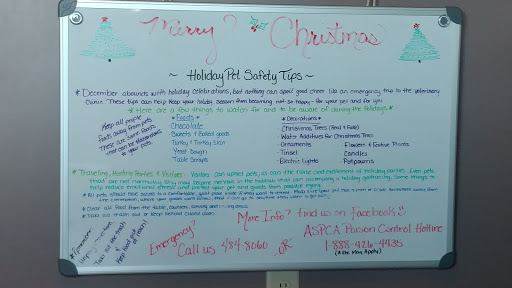 Merry Christmas
~ Holiday Pet Safety Tips ~
* December abounds with holiday celebrations, but nothing can spoil good cheer like an emergency trip to the veterinary
Clinic. These tips can help keep your holiday season from becoming not so happy - for your pet and for you
* Here are a few things to watch for and to be aware of during the Holidays *
Keep all people
foods away from pets
These are some foods
that can be
to your pets
* Foods *
Chocolate
Sweets & Baked goods
Turkey & Turkey Skin
Yeast Dough
Table Scraps
* Decorations *
Christmas Trees (Real & Fake)
Water Additives for Christmas Trees
Ornaments
Tinsel
Electric Lights
Flowers & Festive Plants
Candles
Potpourris
* Traveling, Hosting Parties & Visitors - Visitors can upset pets, as can the noise and excitement of holiday parties. Even pets
that are not normally shy may become nervous in the
that can accompany a holiday gathering. Some things to
help reduce emotional stress and protect your pet and guests from possible injury.
* All pets should have access to a comfortable, quiet place inside
* Clear all food from the table, counters, serving
* Take the trash out or keep behind closed doors
Take out the trash
&
Keep food out
of reach!
Emergency?
Call us 484-8060
OR
More Info? find us on Facebook
ASPCA Poison Control Hotline
1-888-426-4435
(A Fee May Apply)